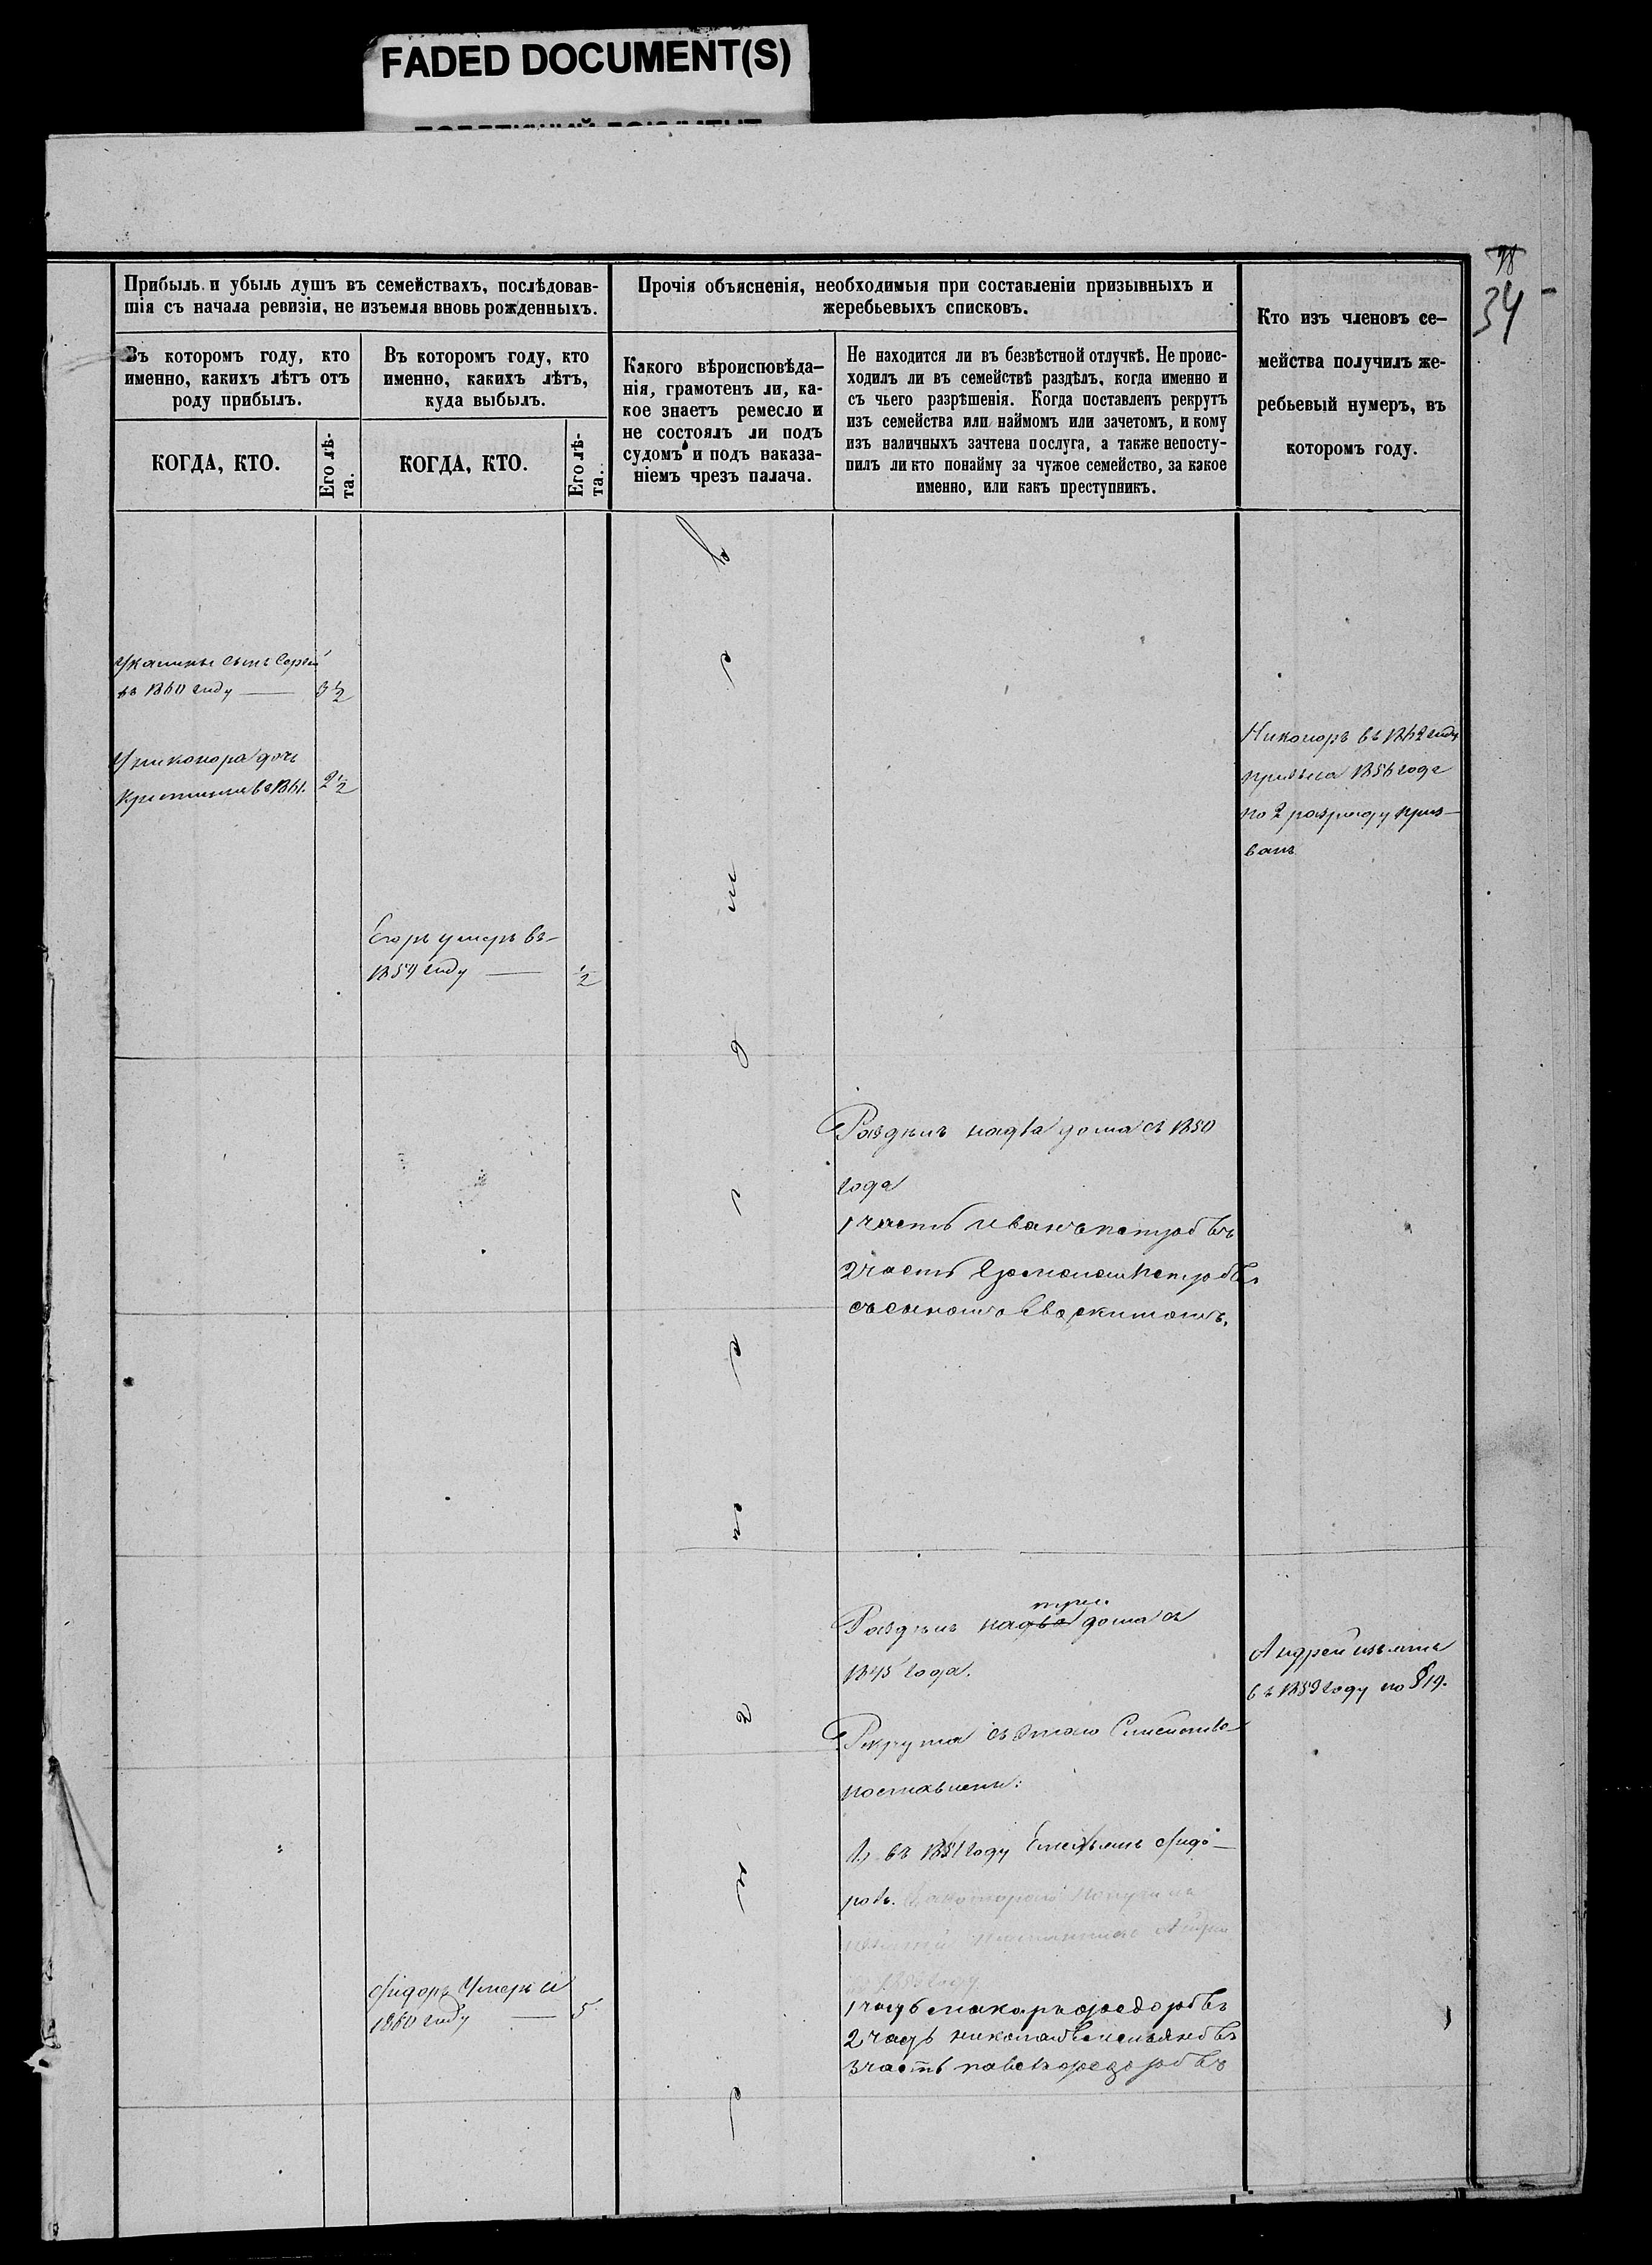 FADED DOCUMENT(S)
38
34
Прибыль и убыль душъ въ семействахъ, послѣдовав-
шія съ начала ревизіи, не изъемля вновь рожденныхъ.
Въ которомъ году, кто
именно, какихъ лѣтъ отъ
роду прибылъ.
КОГДА, КТО.
Его лѣ-
та.
Въ которомъ году, кто
именно, какихъ лѣтъ,
куда выбылъ.
КОГДА, КТО.
Его лѣ-
та.
Прочія объясненія, необходимыя при составленіи призывныхъ и
жеребьевыхъ списковъ.
Какого вѣроисповѣда-
нія, грамотенъ ли, ка-
кое знаетъ ремесло и
не состоялъ ли подъ
судомъ и подъ наказа-
ніемъ чрезъ палача.
Не находится ли въ безвѣстной отлучкѣ. Не проис-
ходилъ ли въ семействѣ раздѣлъ, когда именно и
съ чьего разрѣшенія. Когда поставленъ рекрутъ
изъ семейства или наймомъ или зачетомъ, и кому
изъ наличныхъ зачтена послуга, а также непосту-
пилъ ли кто понайму за чужое семейство, за какое
именно, или какъ преступникъ.
Кто изъ членовъ се-
мейства получилъ же-
ребьевый нумеръ, въ
которомъ году.
сынъ Сергѣй
въ 1860 году — 3 1/2
У никонора дочь
въ 1861. 2 1/2
Егоръ умеръ въ
1859 году — 1/2
Никоноръ въ 1862 году
1856 года
по 2 разряду приз-
ванъ
Раздѣлъ надва дома съ 1850
года
1 часть иванъ петровъ
2 часть петровъ
съсыномъ
три
Раздѣлъ надва дома съ
1845 года.
Рекрута съ этаго Семейства
поставлены:
1, въ 1851 году Емельянъ Фидо-
ровъ.
Андрей изъятъ
въ 1859 году по § 19.
Фидоръ Умеръ въ
1860 году — 5
1 часть макаръ федоровъ
2 часть николай Емельяновъ
3 часть павелъ федоровъ